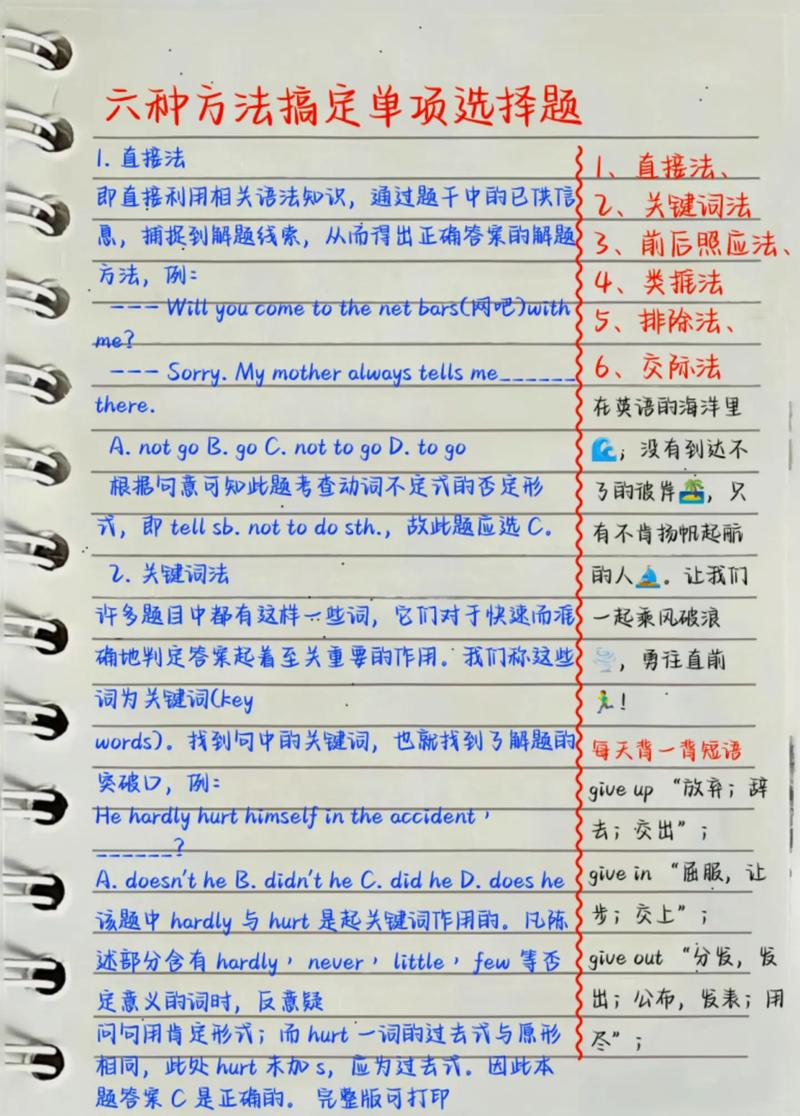 六种方法搞定单项选择题
1. 直接法
即直接利用相关语法知识，通过题干中的已供信
息，捕捉到解题线索，从而得出正确答案的解题
方法，例：
--- Will you come to the net bars(网吧)with
me?
--- Sorry. My mother always tells me______
there.
A. not go B. go C. not to go D. to go
根据句意可知此题考查动词不定式的否定形
式，即 tell sb. not to do sth.，故此题应选 C。
2. 关键词法
许多题目中都有这样一些词，它们对于快速而准
确地判定答案起着至关重要的作用。我们称这些
词为关键词(key
words)。找到句中的关键词，也就找到了解题的
突破口，例：
He hardly hurt himself in the accident，
______?
A. doesn't he B. didn't he C. did he D. does he
该题中 hardly 与 hurt 是起关键词作用的。凡陈
述部分含有 hardly，never，little，few 等否
定意义的词时，反意疑
问句用肯定形式；而 hurt 一词的过去式与原形
相同，此处 hurt 未加 s，应为过去式。因此本
题答案 C 是正确的。 完整版可打印
1、直接法、
2、关键词法
3、前后照应法、
4、类推法
5、排除法、
6、交际法
在英语的海洋里
🌊；没有到达不
了的彼岸🏝️，只
有不肯扬帆起航
的人⛵。让我们
一起乘风破浪
🌪️，勇往直前
🏃！
每天背一背短语
give up “放弃；辞
去；交出”；
give in “屈服，让
步；交上”；
give out “分发，发
出；公布，发表；用
尽”；